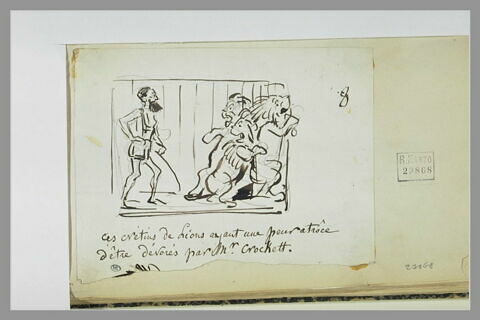 8
ces crétins de Lions ayant une peur atrôce
d'être dévorés par Mr. Crockett.
29868
23868